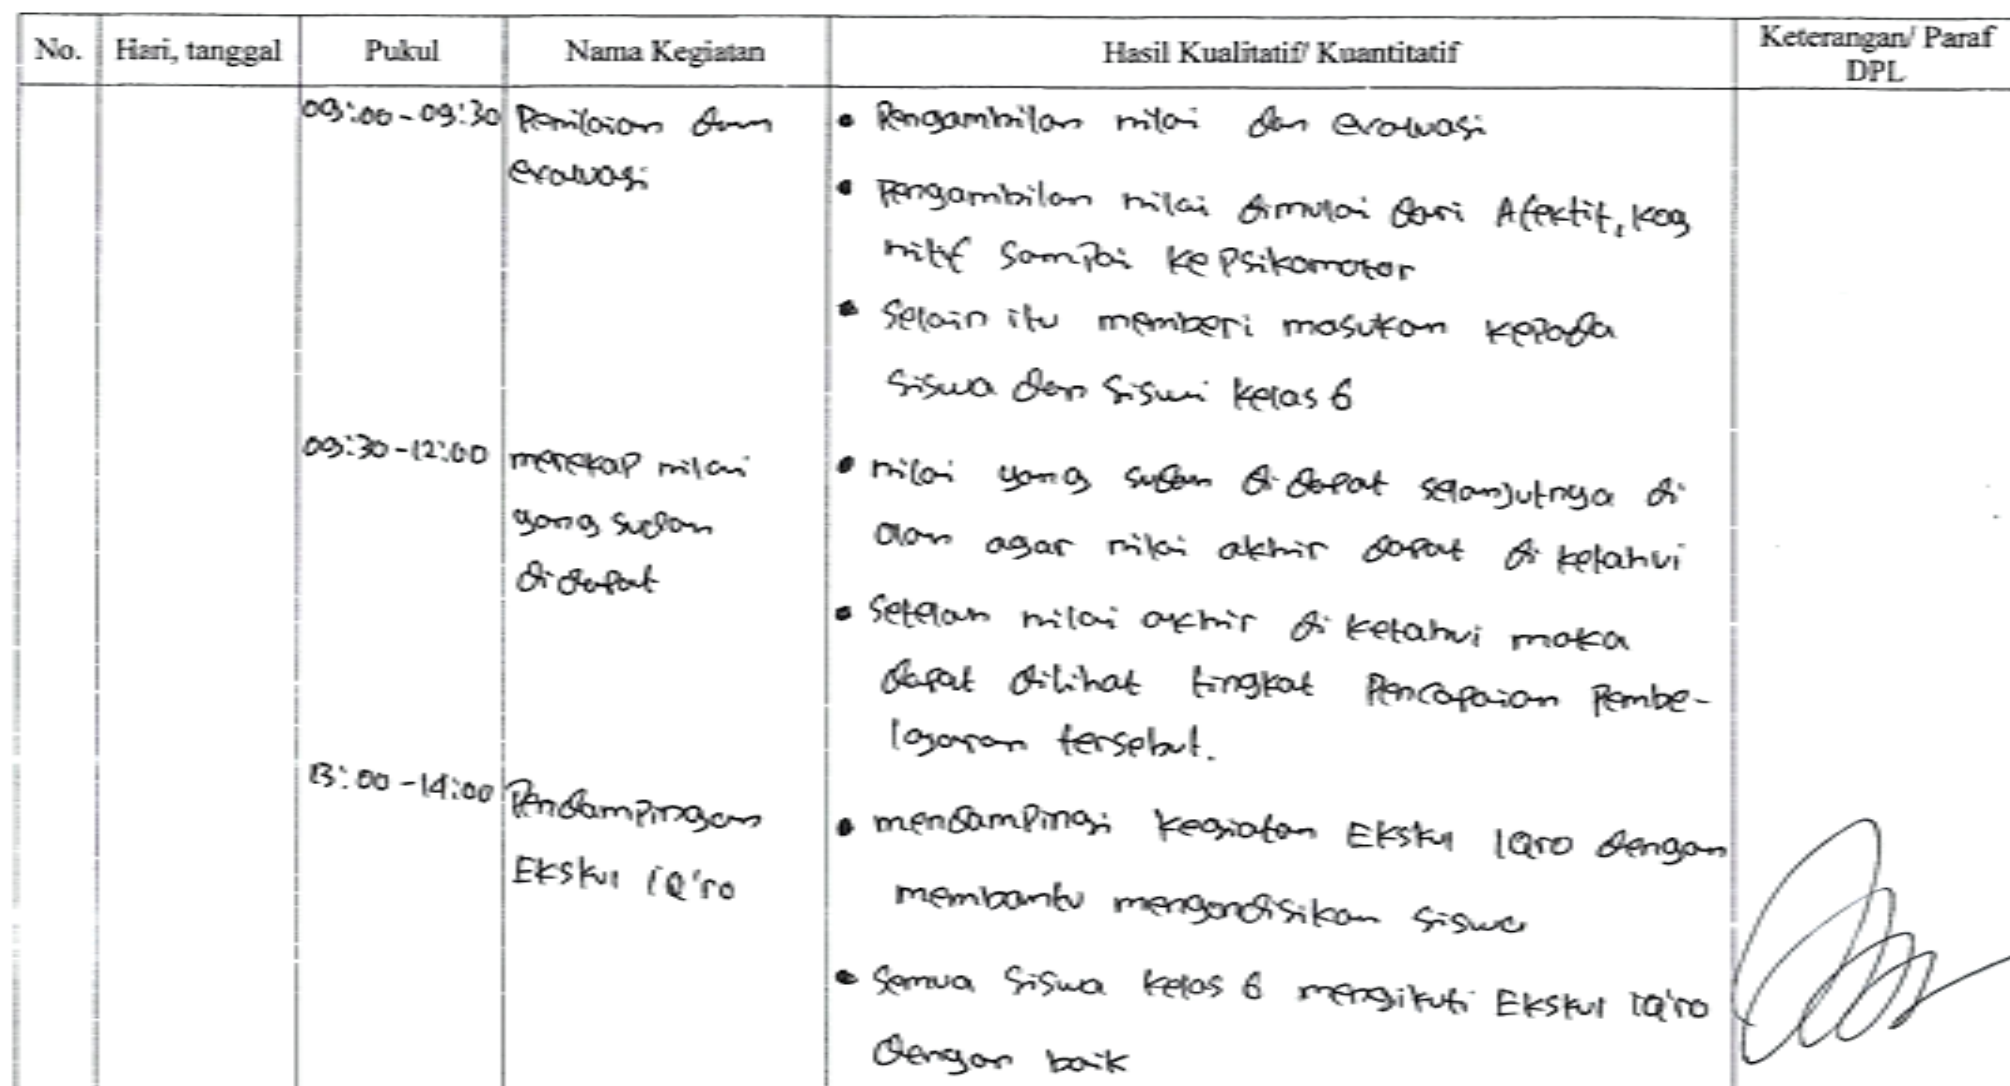 No. Hari, tanggal Pukul Nama Kegiatan Hasil Kualitatif/ Kuantitatif Keterangan/ Paraf
DPL
09:00-09:30 Penilaian dan
evaluasi
• Pengambilan nilai dan evaluasi
• Pengambilan nilai dimulai dari Afektif, Kog
nitif Sampai ke Psikomotor
• Selain itu memberi masukan kepada
siswa dan siswi kelas 6
09:30-12:00 merekap nilai
yang sudah
di dapat
• nilai yang sudah di dapat selanjutnya di
olah agar nilai akhir dapat di ketahui
• Setelah nilai akhir di ketahui maka
dapat dilihat tingkat Pencapaian Pembe-
lajaran tersebut.
13:00-14:00 Pendampingan
Ekskul iQ'ro
• mendampingi kegiatan Ekskul IQro dengan
membantu mengondisikan siswa
• Semua siswa kelas 6 mengikuti Ekskul IQ'ro
dengan baik